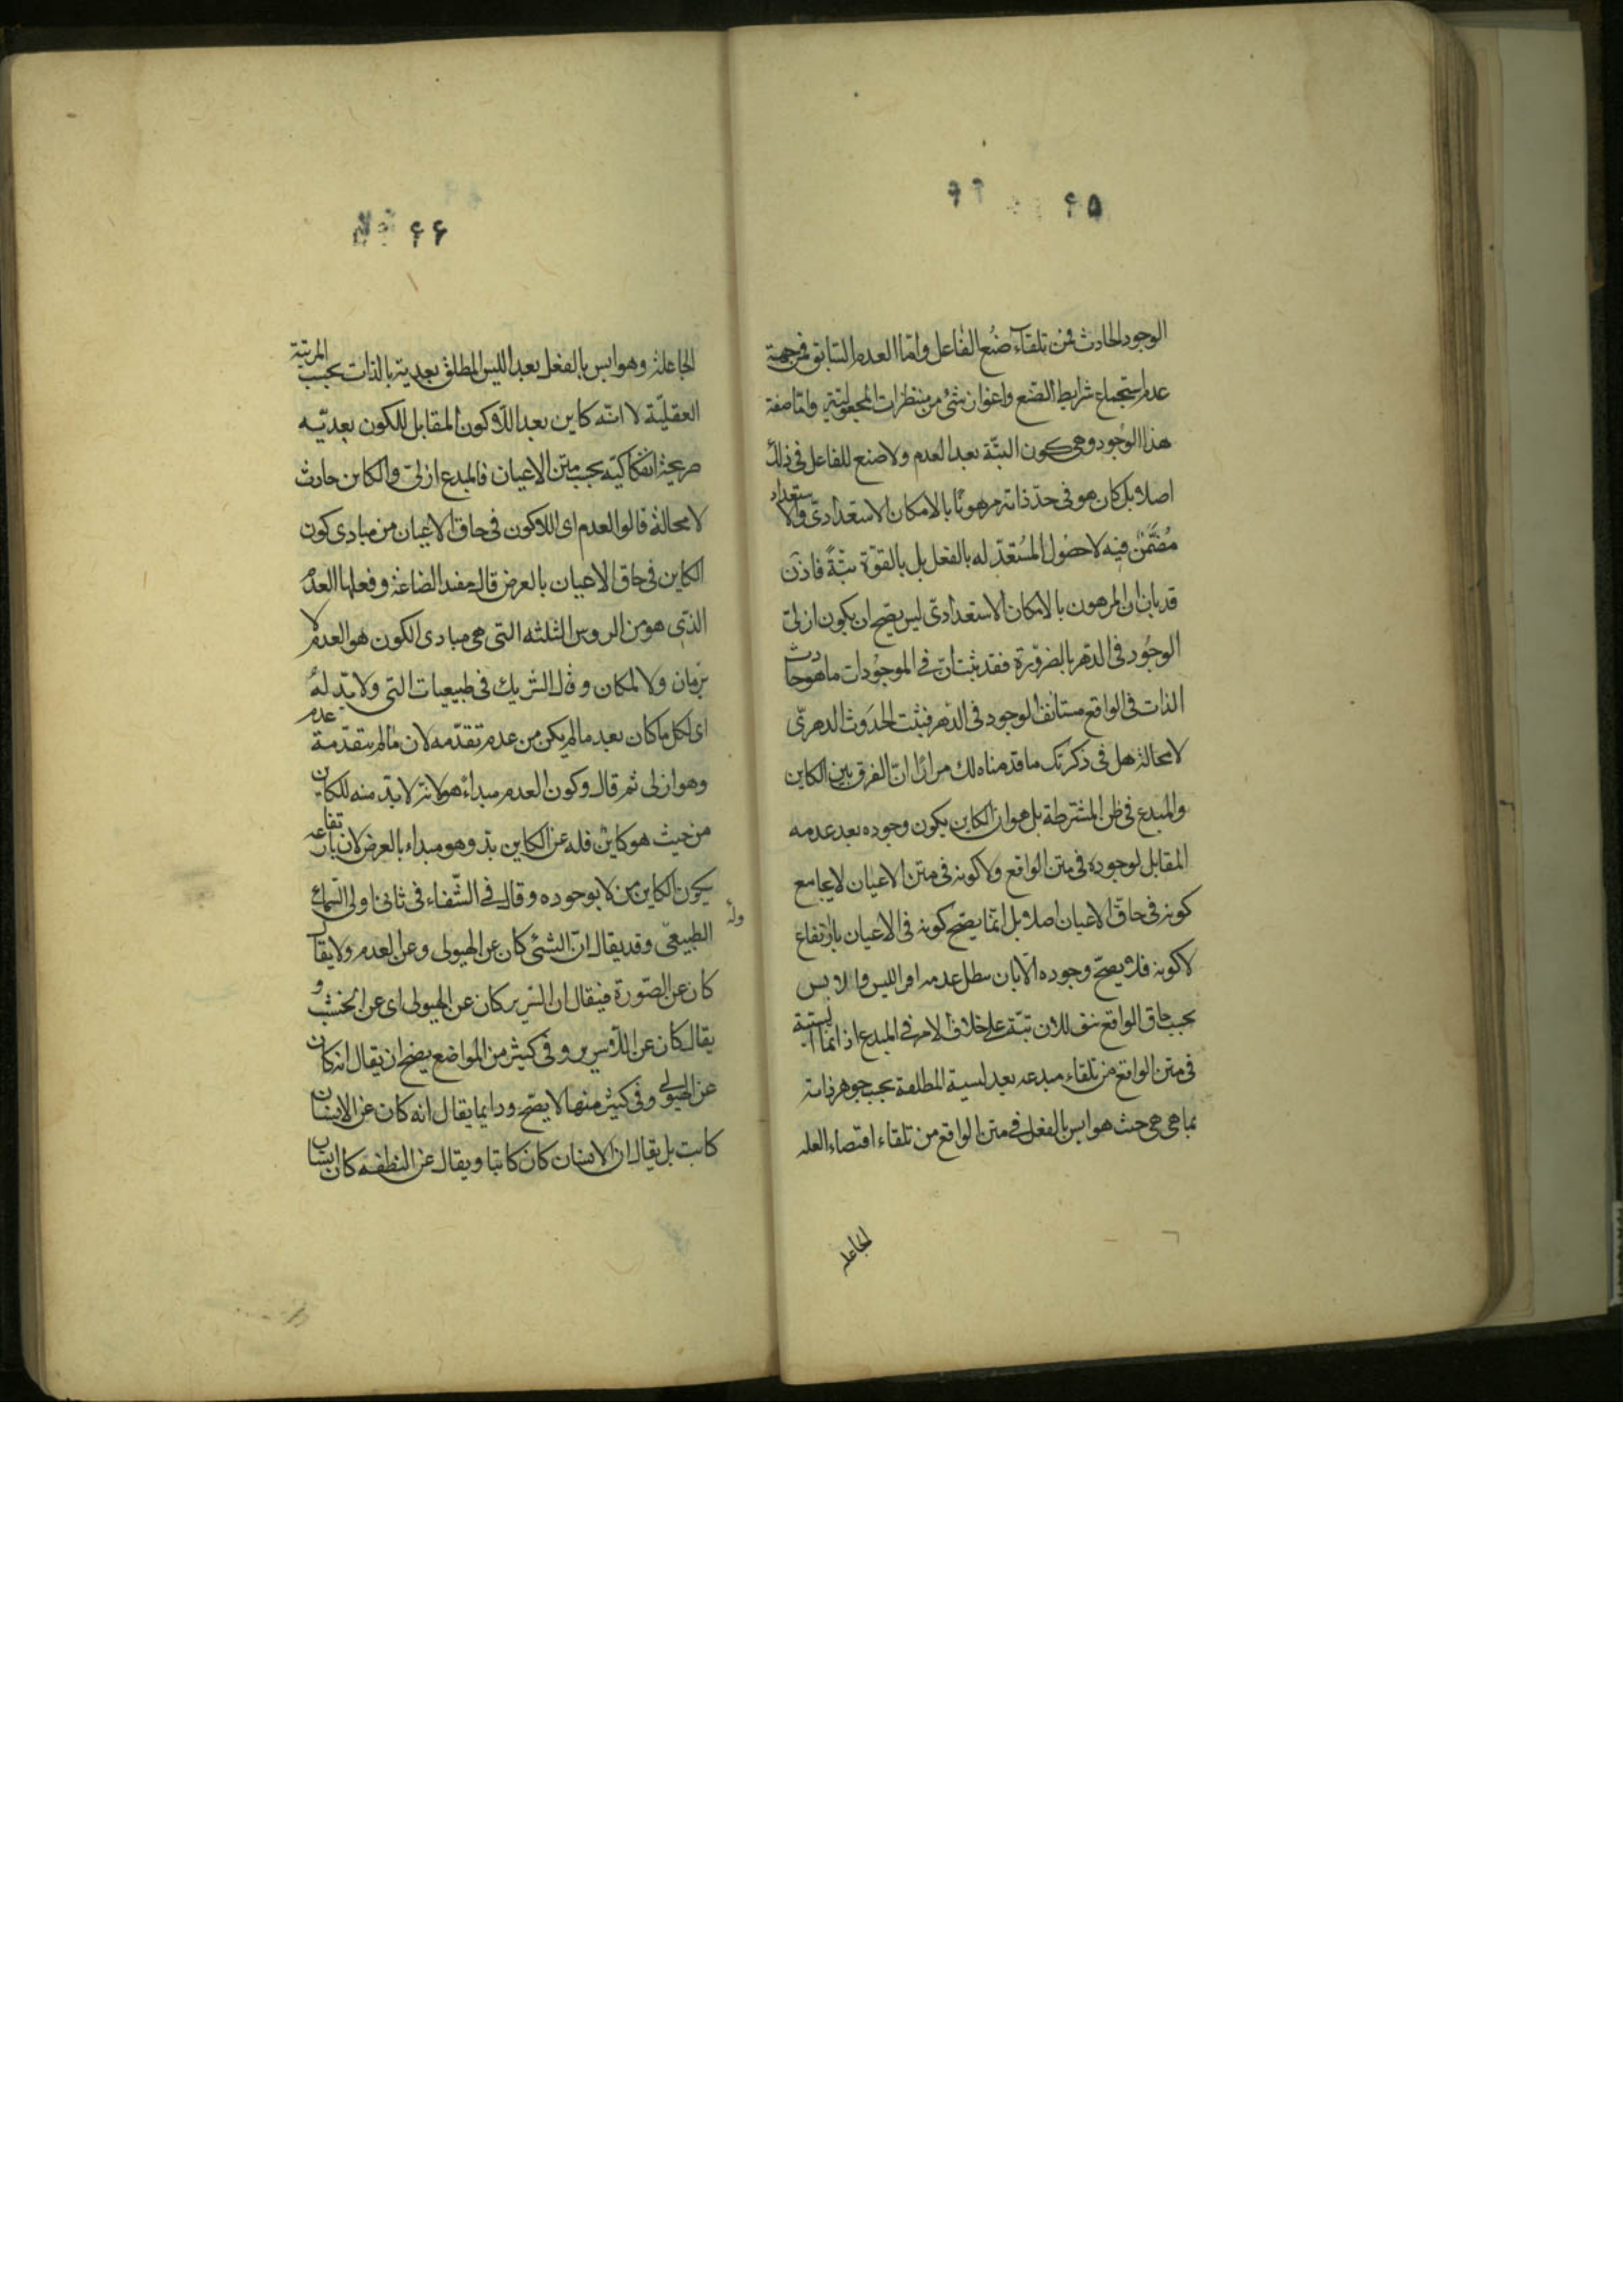 ۶۵
الوجود الحادث فمن تلقاء صُنع الفاعل واما العدم السابق فمن جهة
عدم استجماع شرايط الصّنع واعواز شئ من منتظرات المجعوليّة واما صفة
هذا الوجود وهى كون البتّة بعد العدم ولا صنع للفاعل فى ذلك
اصلا بل كان هو فى حدّ ذاته مرهونًا بالامكان الاستعدادىّ والاستعداد
مُضَمَّن فيه لا حصُول المُستعَدّ له بالفعل بل بالقوّة بتّةً فاذن
قد بان ان المرهون بالامكان الاستعدادىّ ليس يصح ان يكون ازلىّ
الوجُود فى الدّهر بالضرورة فقد ثبت انّ فى الموجوُدات ما هو حادث
الذات فى الواقع مستانف الوجود فى الدّهر فثبت الحدَوث الدهرىّ
لا محالة هل فى ذكرتك ما قدّمناه لك مرارًا انّ الفرق بين الكاين
والمبدع فى ظن المشترطة بل هو ان الكاين يكون وجوده بعد عدمه
المقابل لوجوده فى متن الواقع ولا كونه فى متن الاعيان لا يجامع
كونه فى حاقّ الاعيان اصلا بل انّما يصّح كونه فى الاعيان بارتفاع
لا كونه فلا يصحّ وجوده الّا بان يبطل عدمه الليس والايس
بحسب حاق الواقع بتّة على خلاف الامر فى المبدع اذ انما ايسيّته
فى متن الواقع من تلقاء مبدعه بعد ليسية المطلقة بحسب جوهر ذاته
بما هى هى حيث هو ايس بالفعل فى متن الواقع من تلقاء اقتضاء العله
الجاعله
۶۶
الجاعلة وهو ايس بالفعل بعد الليس المطلق بعدية بالذات بحسب المرتبة
العقليّة لا انّه كاين بعد اللّاكون المقابل للكون بعديّه
صريحة انفكاكيّه بحسب متن الاعيان فالمبدع ازلىّ والكاين حادث
لا محالة قالوا العدم اى اللاكون فى حاق الاعيان من مبادى كون
الكاين فى حاق الاعيان بالعرض قال مفيد الصّناعة ومعلمها العدم
الذى هو من الروس الثلثه التى هى مبادى الكون هو العدم لا
بزمان ولا لمكان وقال الشريك فى طبيعيات التى ولا بدّ لهُ
اى لكل ما كان بعد ما لم يكن من عدم تقدّمه لان ما لم يتقدّمه عدم
وهو ازلى ثم قال وكون العدم مبداءً هو لانّه لا بدّ منه للكاين
من حيث هو كاين فله عن الكاين بدّ وهو مبداء بالعرض لان بارتفاعه
يكون الكاين لا بوجوده وقال فى الشّفاء فى ثانى اولى السّماع
الطبيعىّ وقد يقال انّ الشئ كان عن الهيولى وعن العدم ولا يقال
كان عن الصّورة فيقال ان السّرير كان عن الهيولى اى عن الخشب و
يقال كان عن اللّاسرير وفى كثير من المواضع يصّح ان يقال انه كان
عن الهيولى وفى كثير منها لا يصّح ودايما يقال انه كان عن الانسان
كاتب بل يقال ان الانسان كان كاتبا ويقال عن النطفه كان انسان